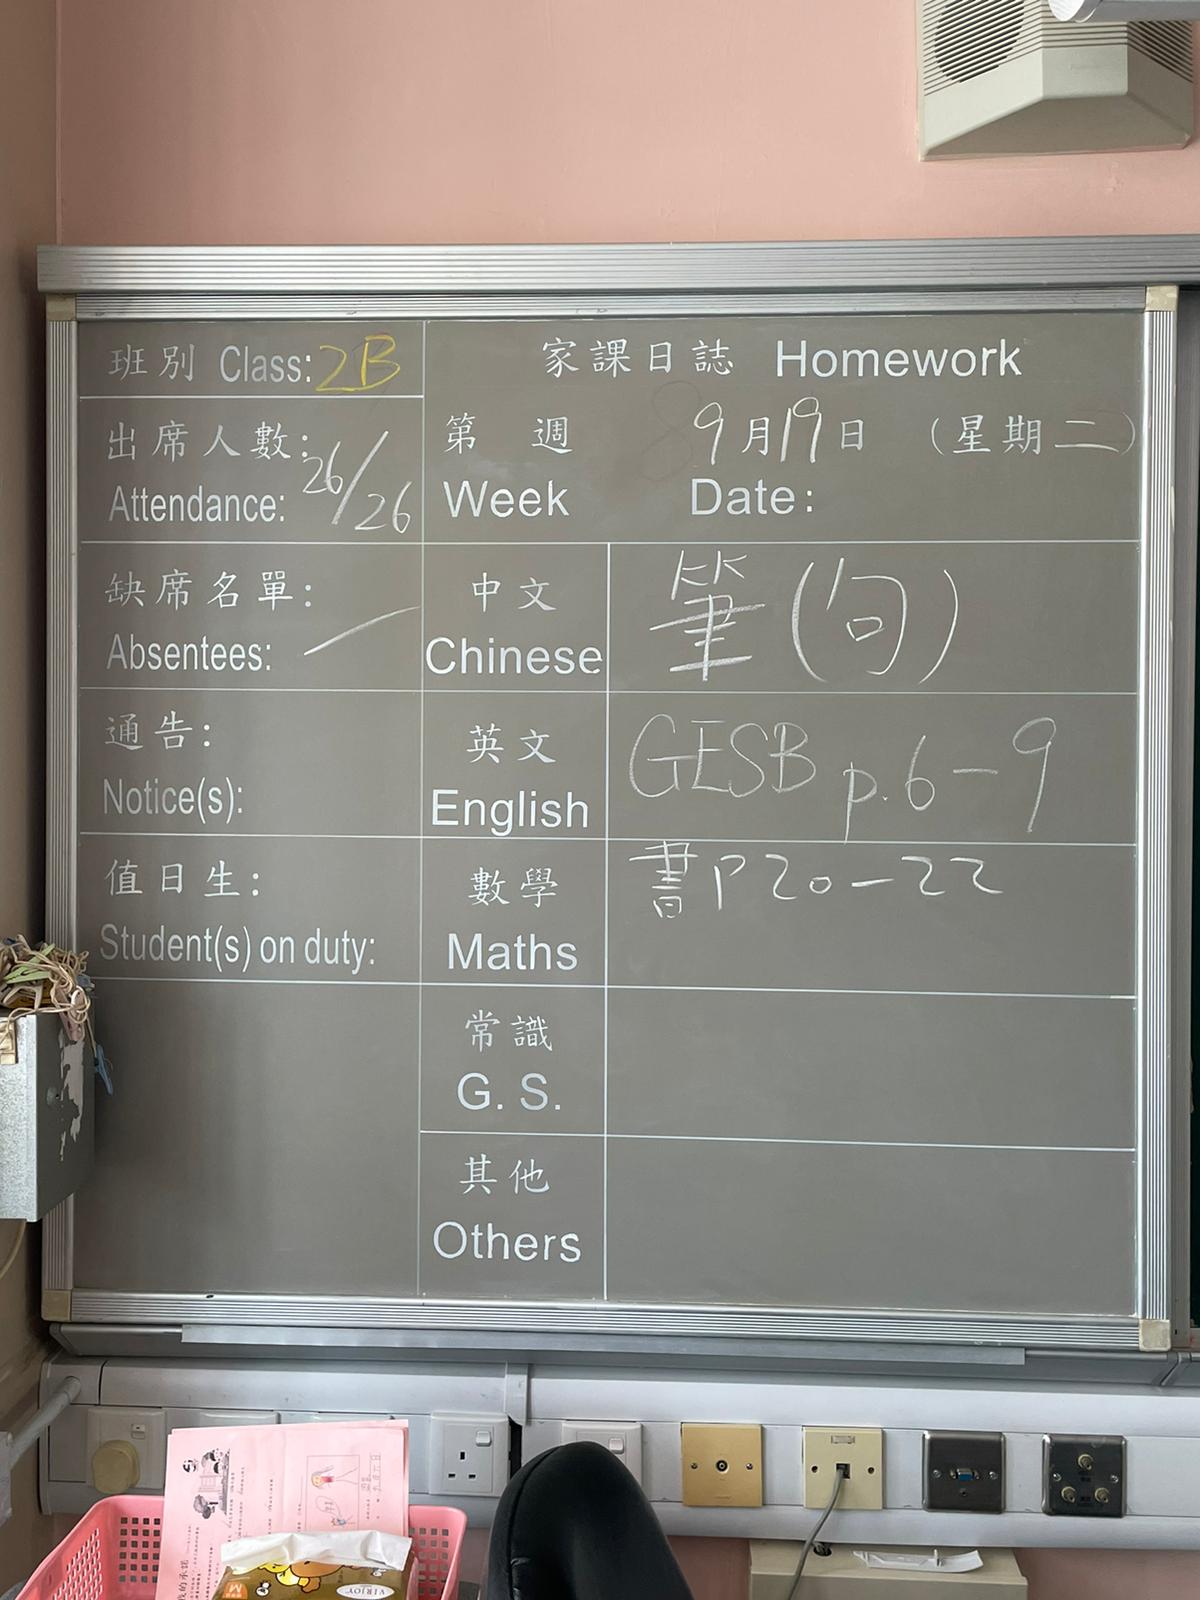 班別 Class: 2B
家課日誌 Homework
出席人數: 26/26
Attendance:
第 週 9月19日 (星期二)
Week Date:
缺席名單:
Absentees:
中文
Chinese
筆(句)
通告:
Notice(s):
英文
English
GESB p.6-9
值日生:
Student(s) on duty:
數學
Maths
書P20-22
常識
G. S.
其他
Others
VIRJOY